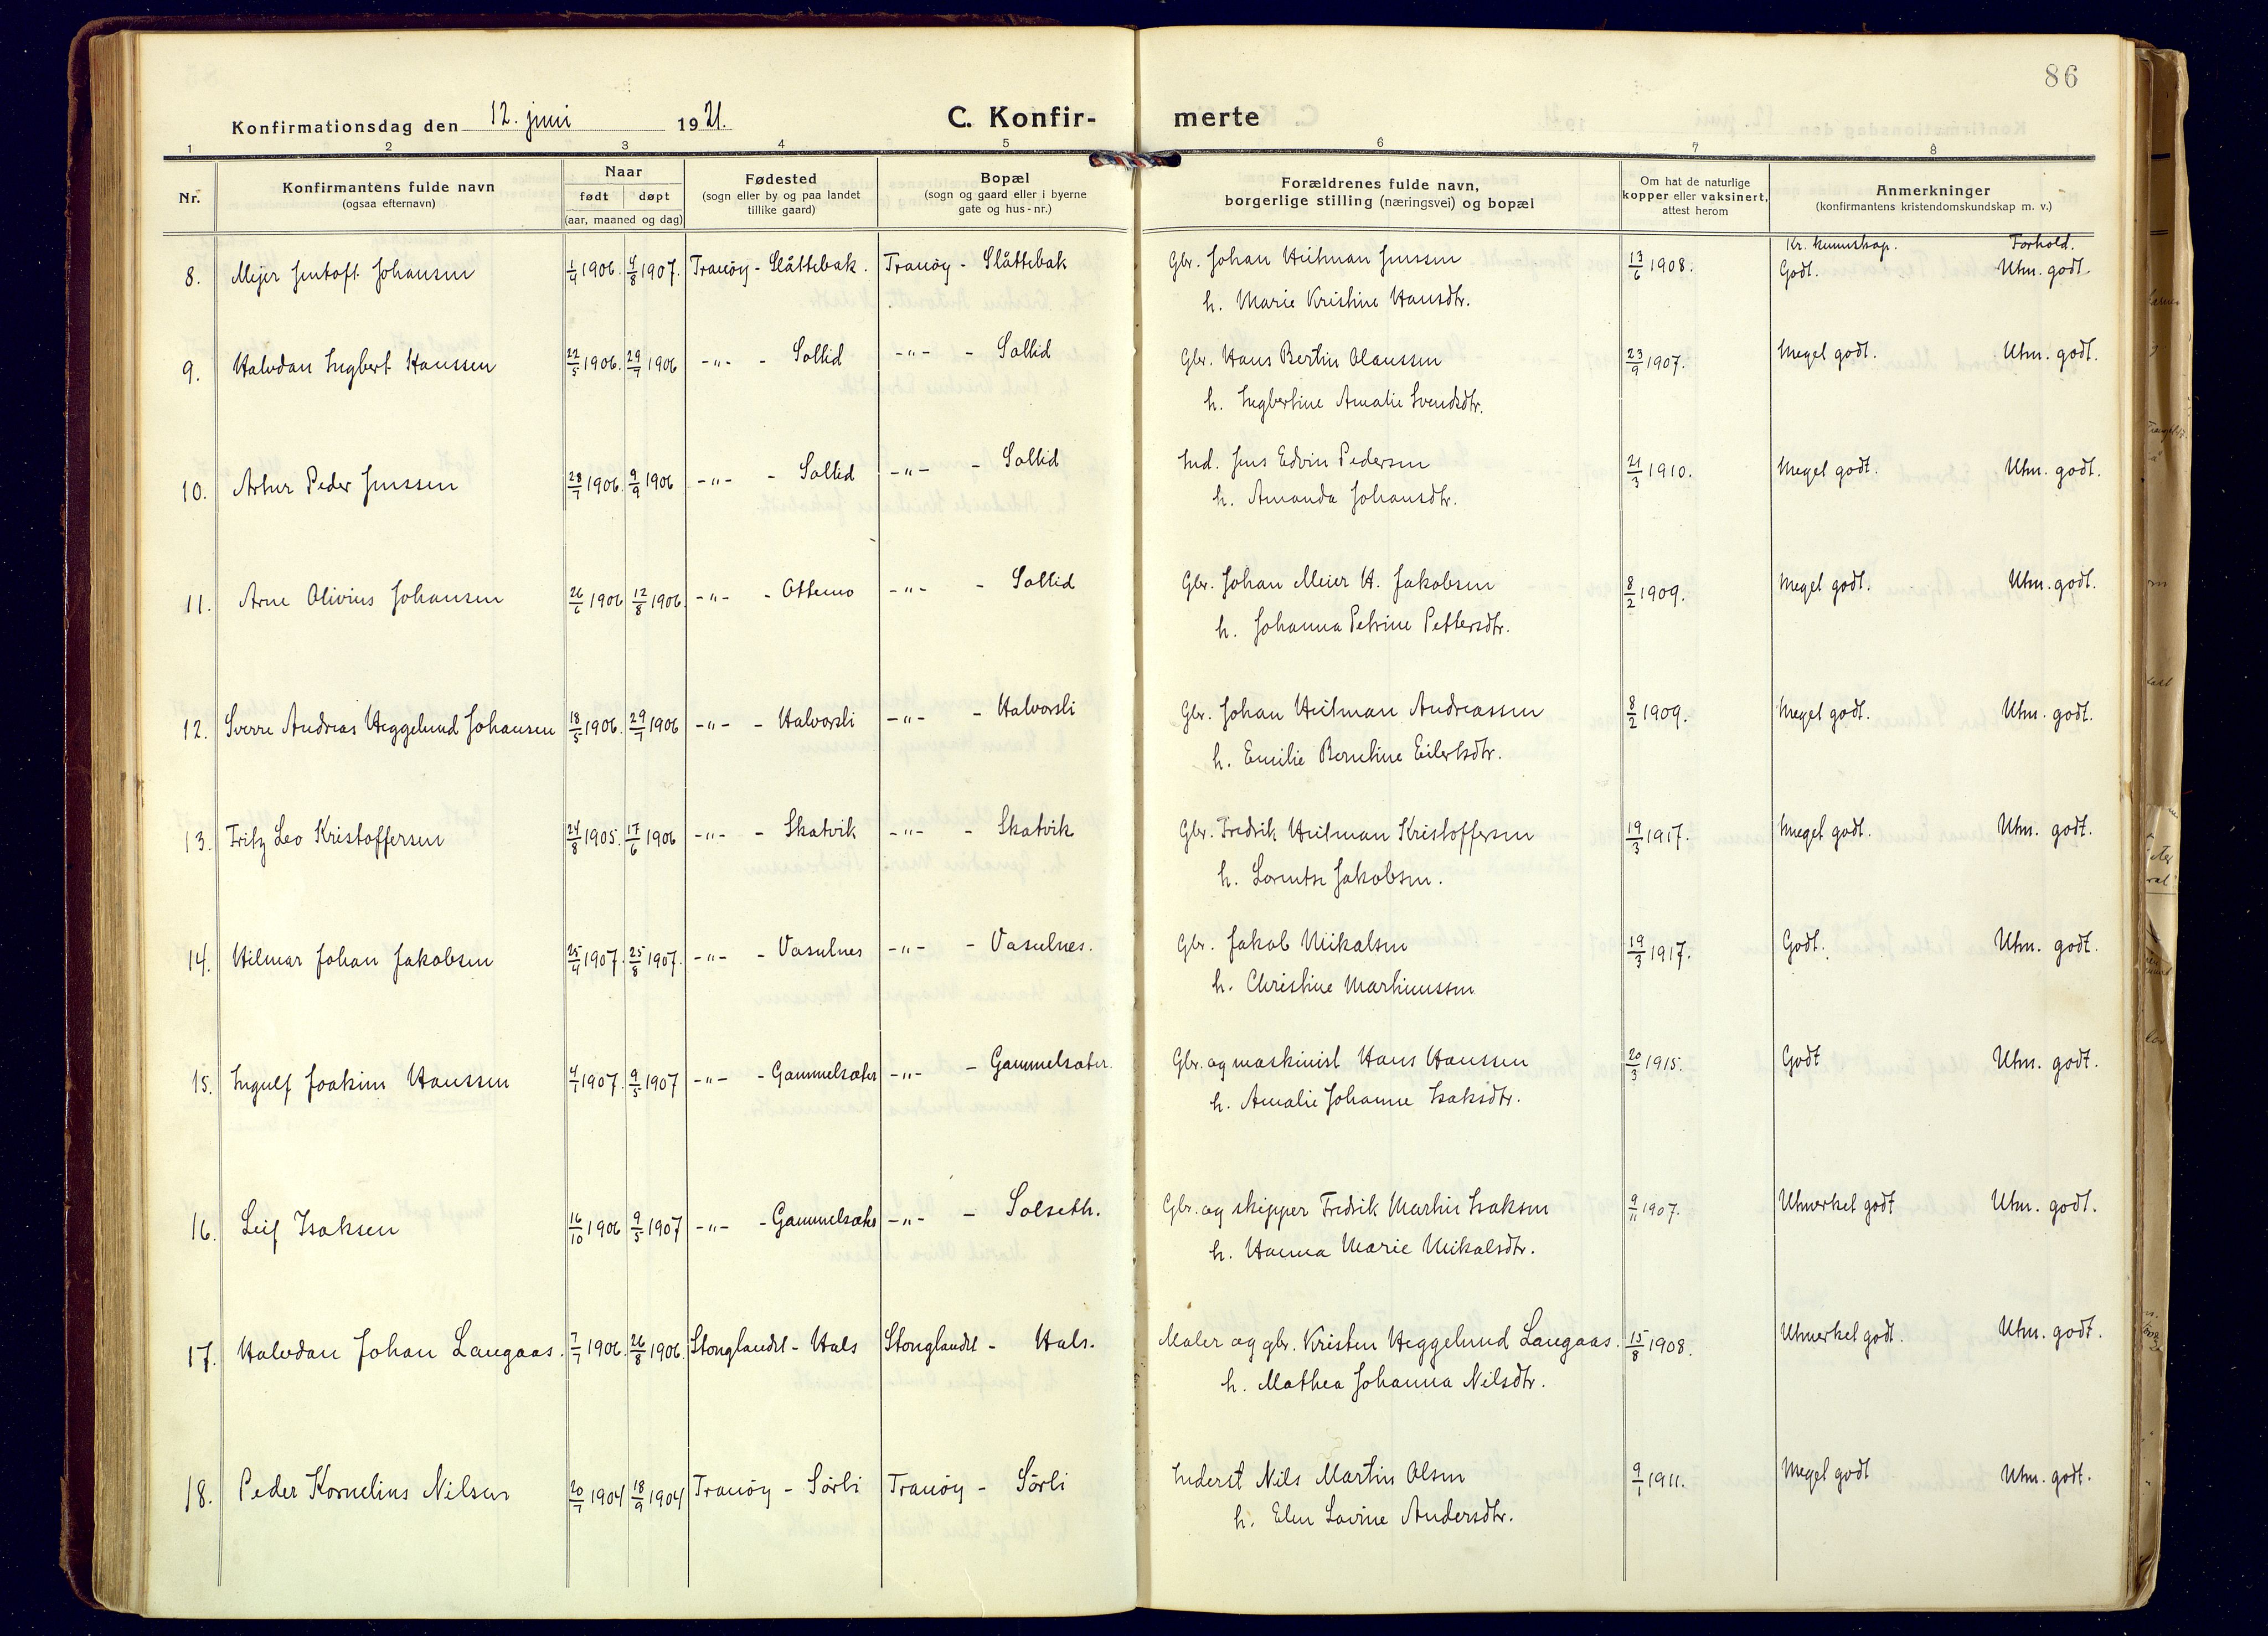 86
Konfirmationsdag den 12. juni 1921.
C. Konfirmerte
1 2 3 4 5 6 7 8
Nr.
Konfirmantens fulde navn
(ogsaa efternavn)
Naar
født døpt
(aar, maaned og dag)
Fødested
(sogn eller by og paa landet
tillike gaard)
Bopæl
(sogn og gaard eller i byerne
gate og hus-nr.)
Forældrenes fulde navn,
borgerlige stilling (næringsvei) og bopæl
Om hat de naturlige
kopper eller vaksinert,
attest herom
Anmerkninger
(konfirmantens kristendomskundskap m. v.)
Kr. kunnskap. Forhold.
8. Mejer Jentoft Johansen 1/4 1906. 4/8 1907. Tranöy - Slåttebak. Tranöy - Slåttebak Gbr. Johan Hilman Jenssen 13/6 1908. Godt. Utm. godt.
h. Marie Kristine Hansdtr.
9. Halvdan Ingbert Hanssen 22/5 1906. 29/7 1906 -"- - Sollid -"- - Sollid Gbr. Hans Bertin Olaussen 23/9 1907. Meget godt. Utm. godt.
h. Ingbertine Amalie Svendsdtr.
10. Artur Peder Jenssen 28/7 1906. 9/9 1906 -"- - Sollid -"- - Sollid Ind. Jens Edvin Pedersen 21/3 1910. Meget godt. Utm. godt.
h. Amanda Johansdtr.
11. Arne Olivius Johansen 26/6 1906 12/8 1906. -"- - Ottemo -"- - Sollid Gbr. Johan Meier H. Jakobsen 8/2 1909. Meget godt. Utm. godt.
h. Johanna Petrine Pettersdtr.
12. Sverre Andreas Heggelund Johansen 18/5 1906. 29/7 1906 -"- - Halvorsli -"- - Halvorsli Gbr. Johan Hilman Andreassen 8/2 1909. Meget godt. Utm. godt.
h. Emilie Berntine Eilertsdtr.
13. Fritz Leo Kristoffersen 24/8 1905. 17/6 1906 -"- - Skatvik -"- - Skatvik Gbr. Fredrik Hilman Kristoffersen 19/3 1917. Meget godt. Utm. godt.
h. Lorentse Jakobsen.
14. Hilmar Johan Jakobsen 25/4 1907. 25/8 1907. -"- - Vaselnes -"- - Vaselnes. Gbr. Jakob Mikalsen 19/3 1917. Godt. Utm. godt.
h. Christine Martinussen
15. Ingulf Joakim Hanssen 4/1 1907. 9/5 1907 -"- - Gammelsæter -"- - Gammelsæter. Gbr. og maskinist Hans Hanssen 20/3 1915. Godt Utm. godt.
h. Amalie Johanne Isaksdtr.
16. Leif Isaksen 16/10 1906 9/5 1907 -"- - Gammelsæter -"- - Solseth. Gbr. og skipper Fredrik Martin Isaksen 9/11 1907. Utmerket godt Utm. godt.
h. Hanna Marie Mikalsdtr.
17. Halvdan Johan Langaas. 7/7 1906. 26/8 1906. Stonglandet - Hals Stonglandet - Hals. Maler og gbr. Kristen Heggelund Langaas. 15/8 1908. Utmerket godt. Utm. godt.
h. Mathea Johanna Nilsdtr.
18. Peder Kornelius Nilsen 20/7 1904 18/9 1904 Tranöy - Sörli Tranöy - Sörli Inderst Nils Martin Olsen 9/1 1911. Meget godt Utm. godt.
h. Elen Lovine Andersdtr.